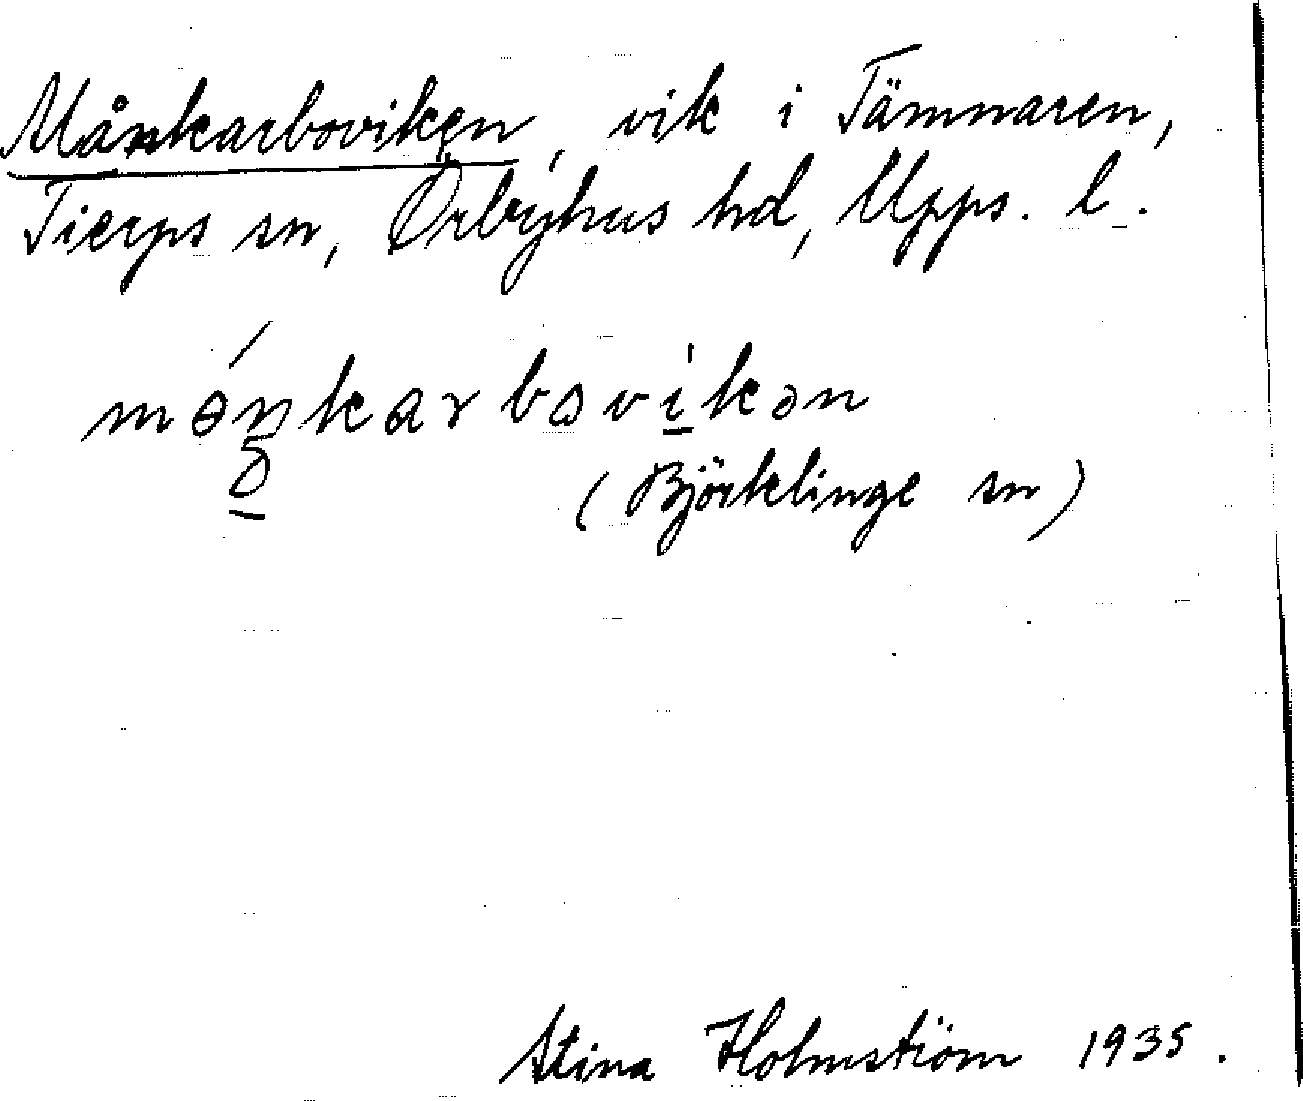 Månkarboviken, vik i Tämnaren,
Tierps sn, Örbyhus hd, Upps. l.
mɵ́nkarbovikən
(Björklinge sn)
Stina Holmström 1935.